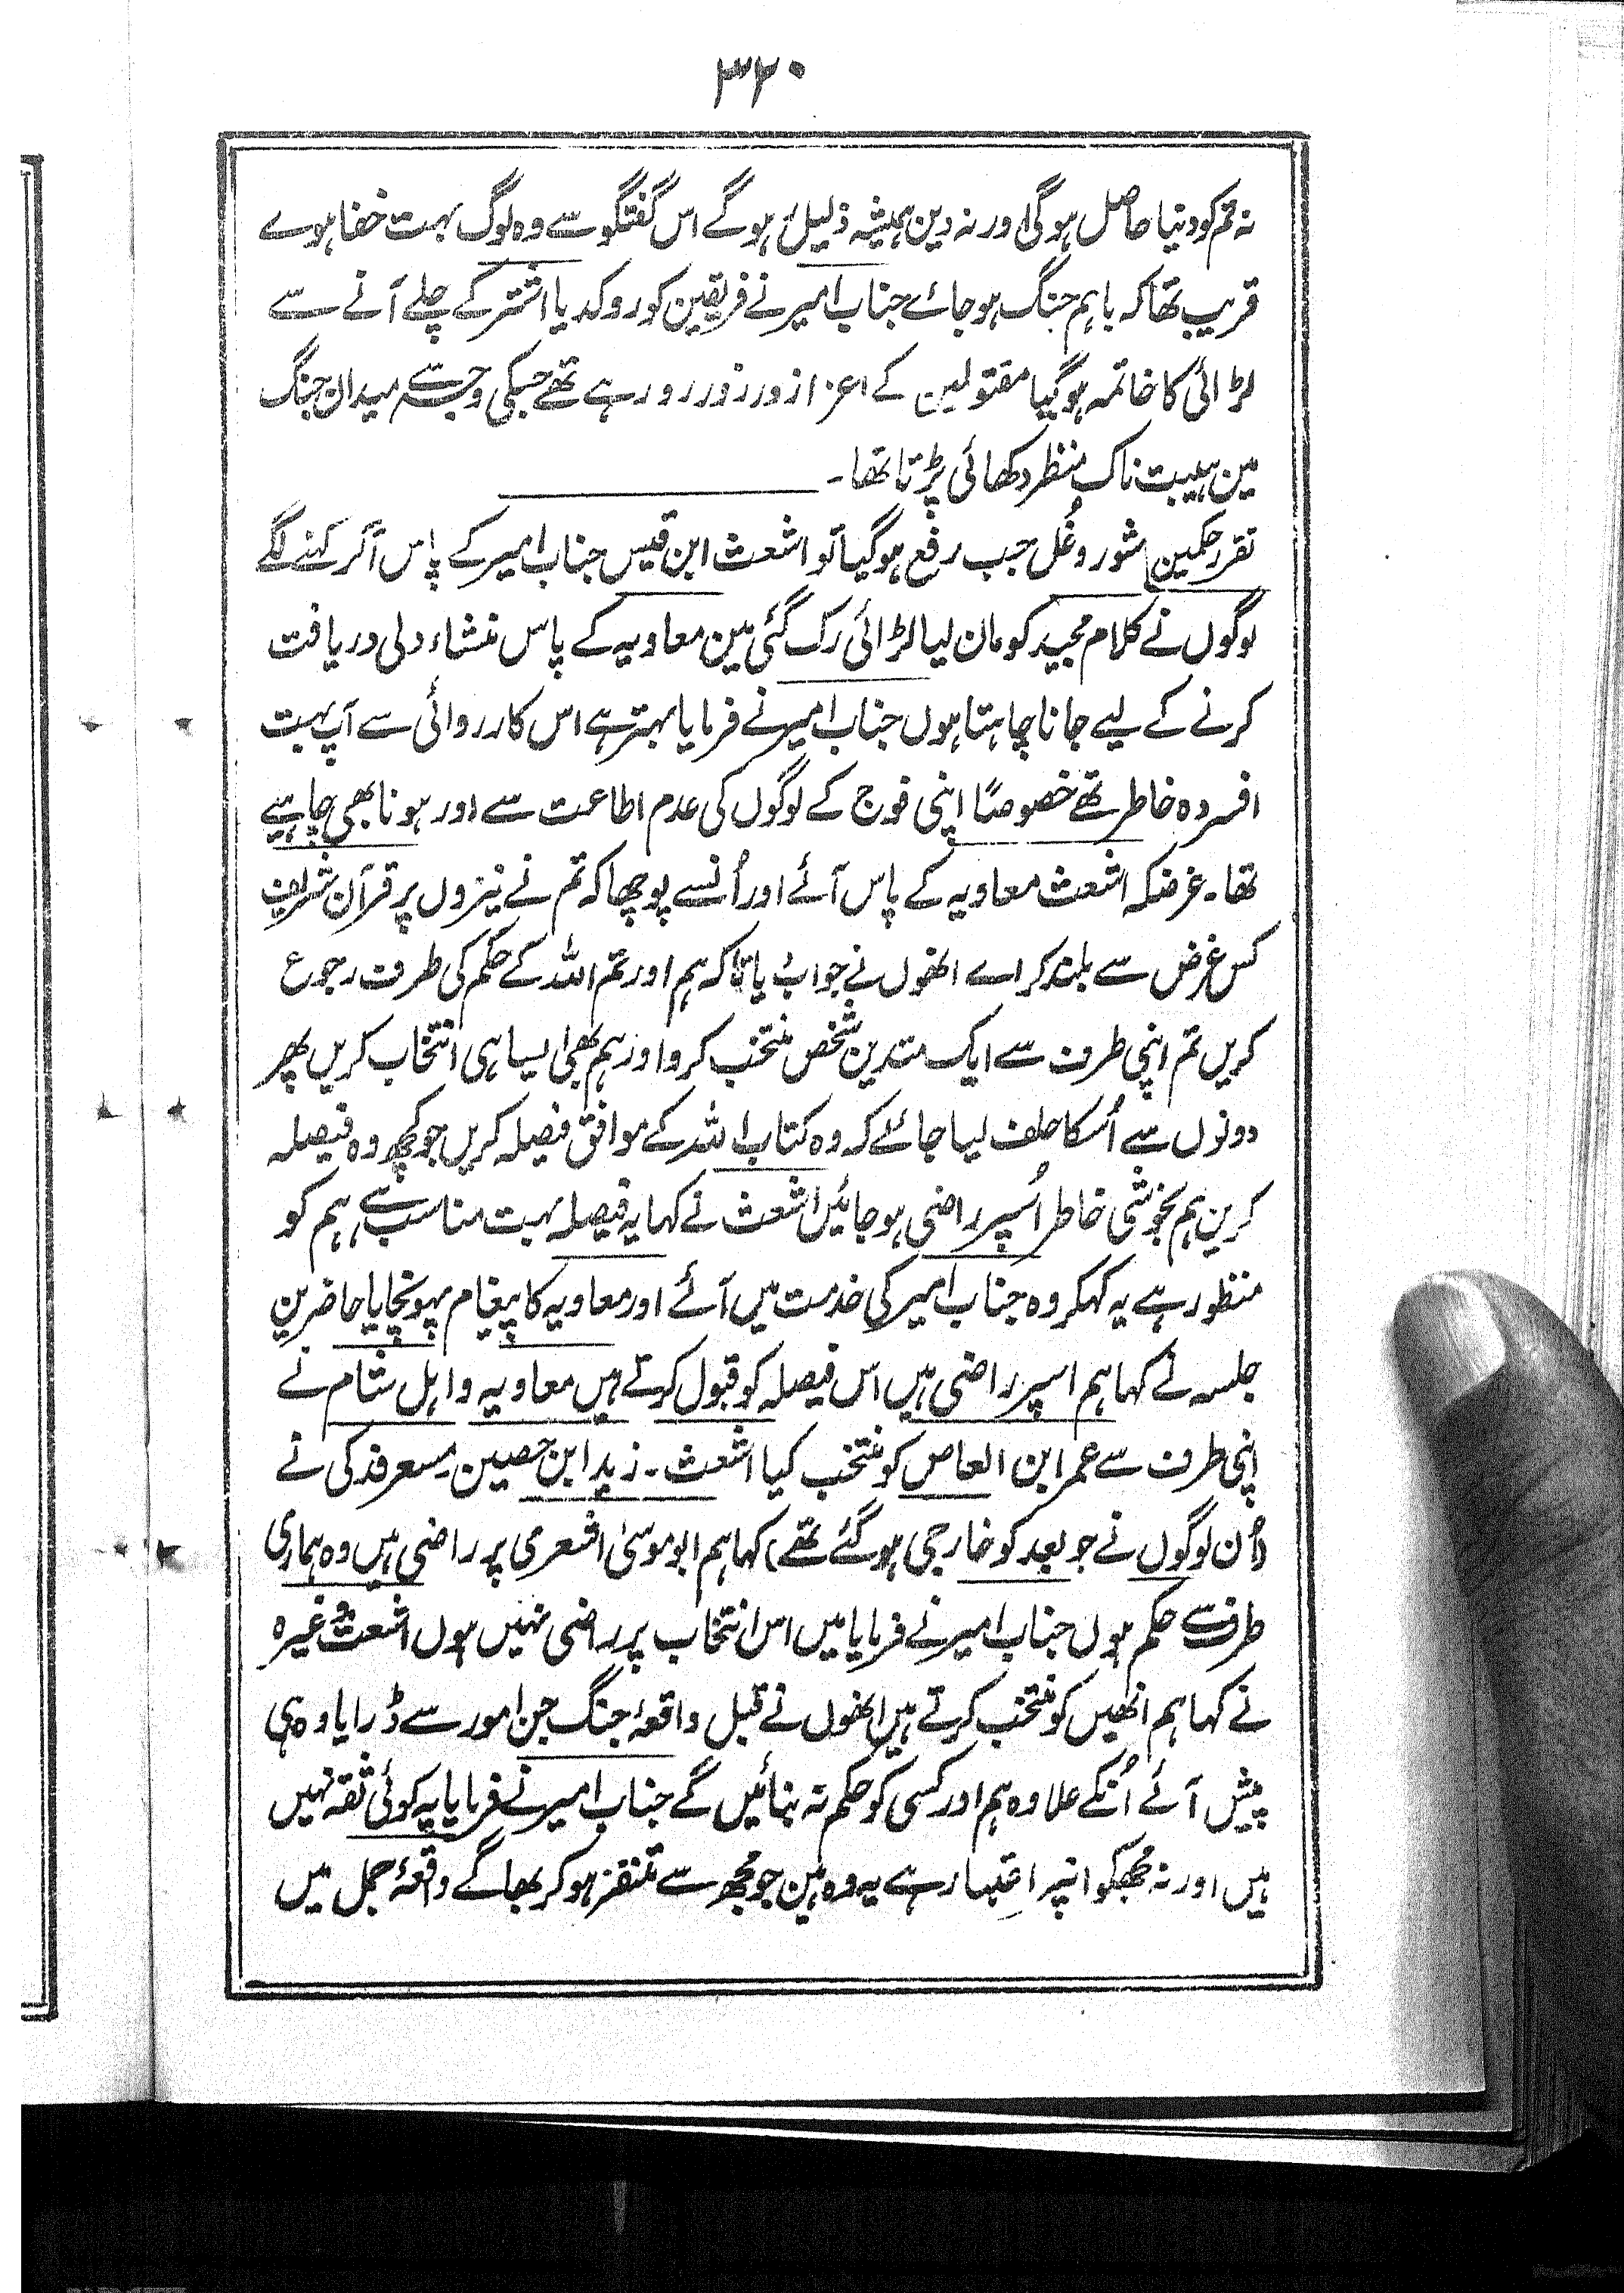 ۳۲۰
نہ تم کو دنیا حاصل ہوگی اور نہ دین ہمیشہ ذلیل ہوگے اس گفتگو سے وہ لوگ بہت خفا ہوے
قریب تھا کہ باہم جنگ ہو جاے جناب امیر نے فریقین کو روکدیا اشتر کے چلے آنے سے
لڑائی کا خاتمہ ہو گیا مقتولین کے اعزا زور زور رو رہے تھے جسکی وجہسے میدان جنگ
مین ہیبت ناک منظر دکھائی پڑتا تھا۔
تقرر حکمین شور و غُل جب رفع ہو گیا تو اشعث ابن قیس جناب امیر کے پاس آکر کہنے لگے
لوگوں نے کلام مجید کو مان لیا لڑائی رک گئی مین معاویہ کے پاس منشاء دلی دریافت
کرنے کے لیے جانا چاہتا ہوں جناب امیر نے فرمایا بہتر ہے اس کارروائی سے آپ بہت
افسردہ خاطر تھے خصوصًا اپنی فوج کے لوگوں کی عدم اطاعت سے اور ہونا بھی چاہیے
تھا۔ غرضکہ اشعث معاویہ کے پاس آئے اور اُنسے پوچھا کہ تم نے نیزوں پر قرآن شریف
کس غرض سے بلند کراے انھوں نے جواب دیا تاکہ ہم اور تم اللہ کے حکم کی طرف رجوع
کریں تم اپنی طرف سے ایک متدین شخص منتخب کرو اور ہم بھی ایسا ہی انتخاب کریں پھر
دونوں سے اُسکا حلف لیا جائے کہ وہ کتاب اللہ کے موافق فیصلہ کریں جو کچھ وہ فیصلہ
کرین ہم بخوشی خاطر اُسپر راضی ہو جائیں اشعث نے کہا یہ فیصلہ بہت مناسب ہے ہم کو
منظور ہے یہ کہکر وہ جناب امیر کی خدمت میں آئے اور معاویہ کا پیغام پہونچایا حاضرین
جلسہ نے کہا ہم اسپر راضی ہیں اس فیصلہ کو قبول کرتے ہیں معاویہ و اہل شام نے
اپنی طرف سے عمر ابن العاص کو منتخب کیا اشعث۔ زید ابن حصین۔ مسعر فدکی نے
(اُن لوگوں نے جو بعد کو خارجی ہوگئے تھے) کہا ہم ابو موسیٰ اشعری پر راضی ہیں وہ ہماری
طرف سے حکم ہوں جناب امیر نے فرمایا میں اس انتخاب پر راضی نہیں ہوں اشعث وغیرہ
نے کہا ہم انھیں کو منتخب کرتے ہیں انھوں نے قبل واقعۂ جنگ جن امور سے ڈرایا وہ ہی
پیش آئے اُنکے علاوہ ہم اور کسی کو حکم نہ بنائیں گے جناب امیر نے فرمایا یہ کوئی ثقہ نہیں
ہیں اور نہ مجھکو انپر اعتبار ہے یہ وہ ہین جو مجھ سے متنفر ہو کر بھاگے واقعۂ جمل میں